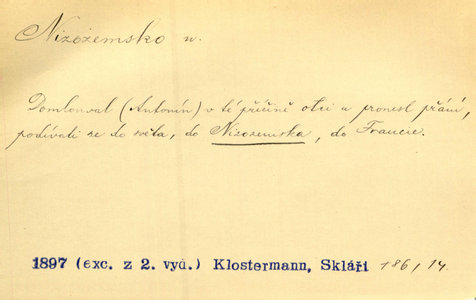 Nizozemsko n.
Domlouval (Antonín) v té příčině otci a pronesl přání,
podívati se do světa, do Nizozemska, do Francie.
1897 (exc. z 2. vyd.) Klostermann, Skláři 186, 14.